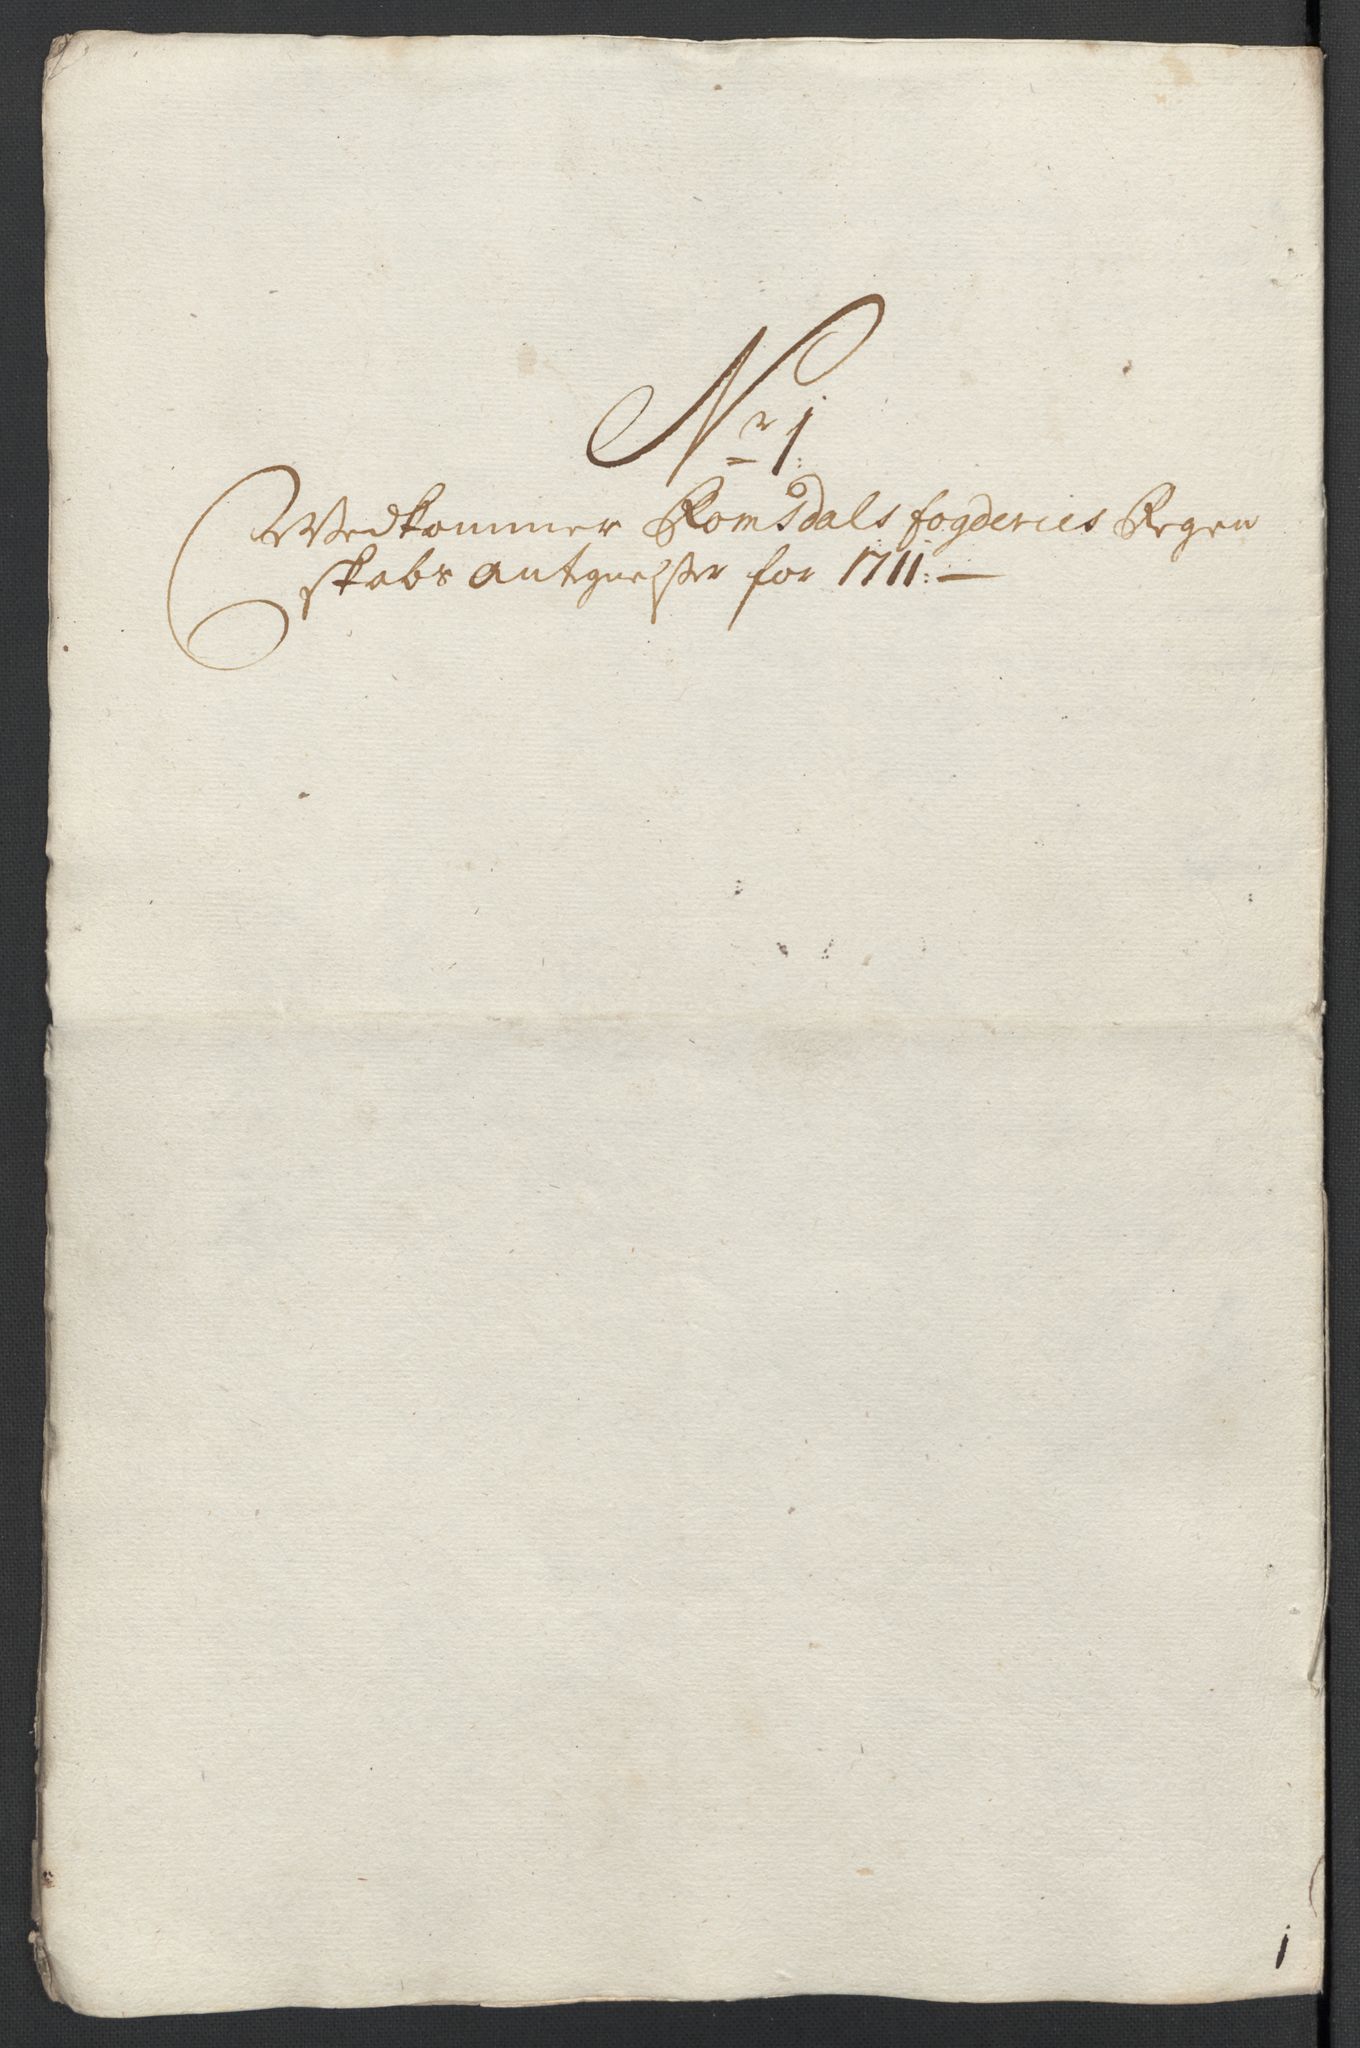 Nr 1:
Vedkommer Romsdals fogderies Regen
skabs Antegnelsser for 1711: —
1